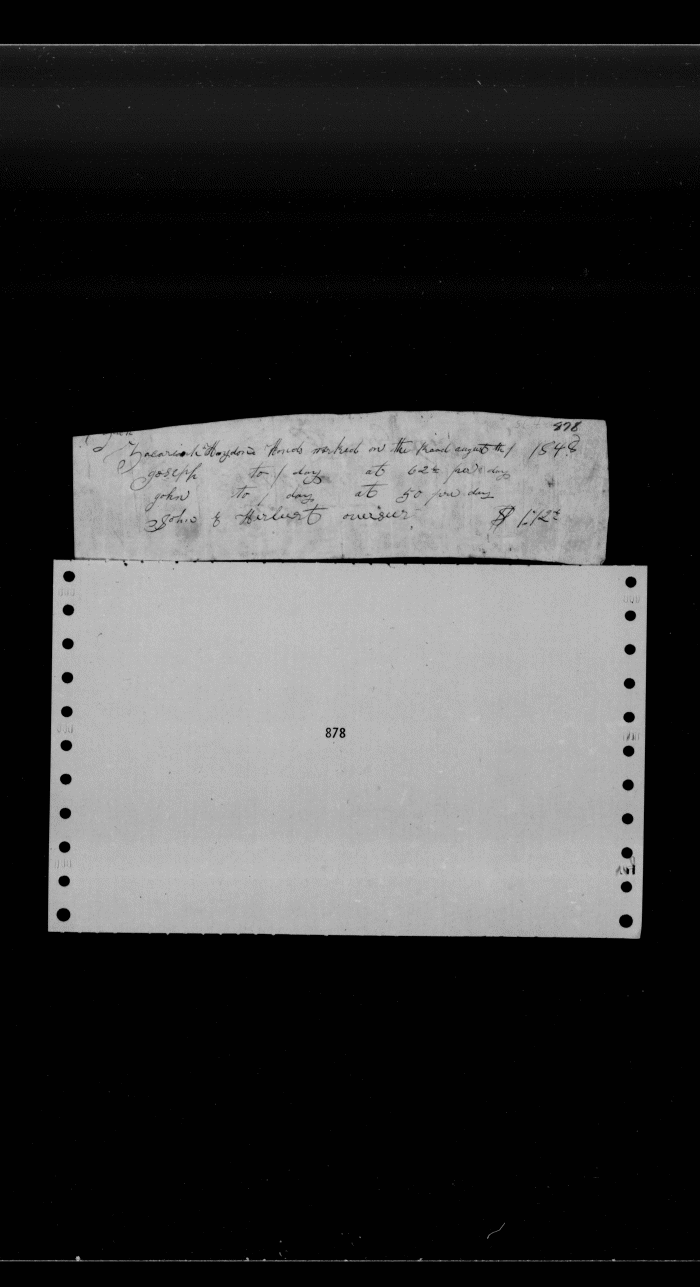 878
Hands worked on the Road august th 1 1848
joseph to 1 day at 62½ per day
john to 1 day at 50 per day
John Herburt overseer $ 1.12½
878